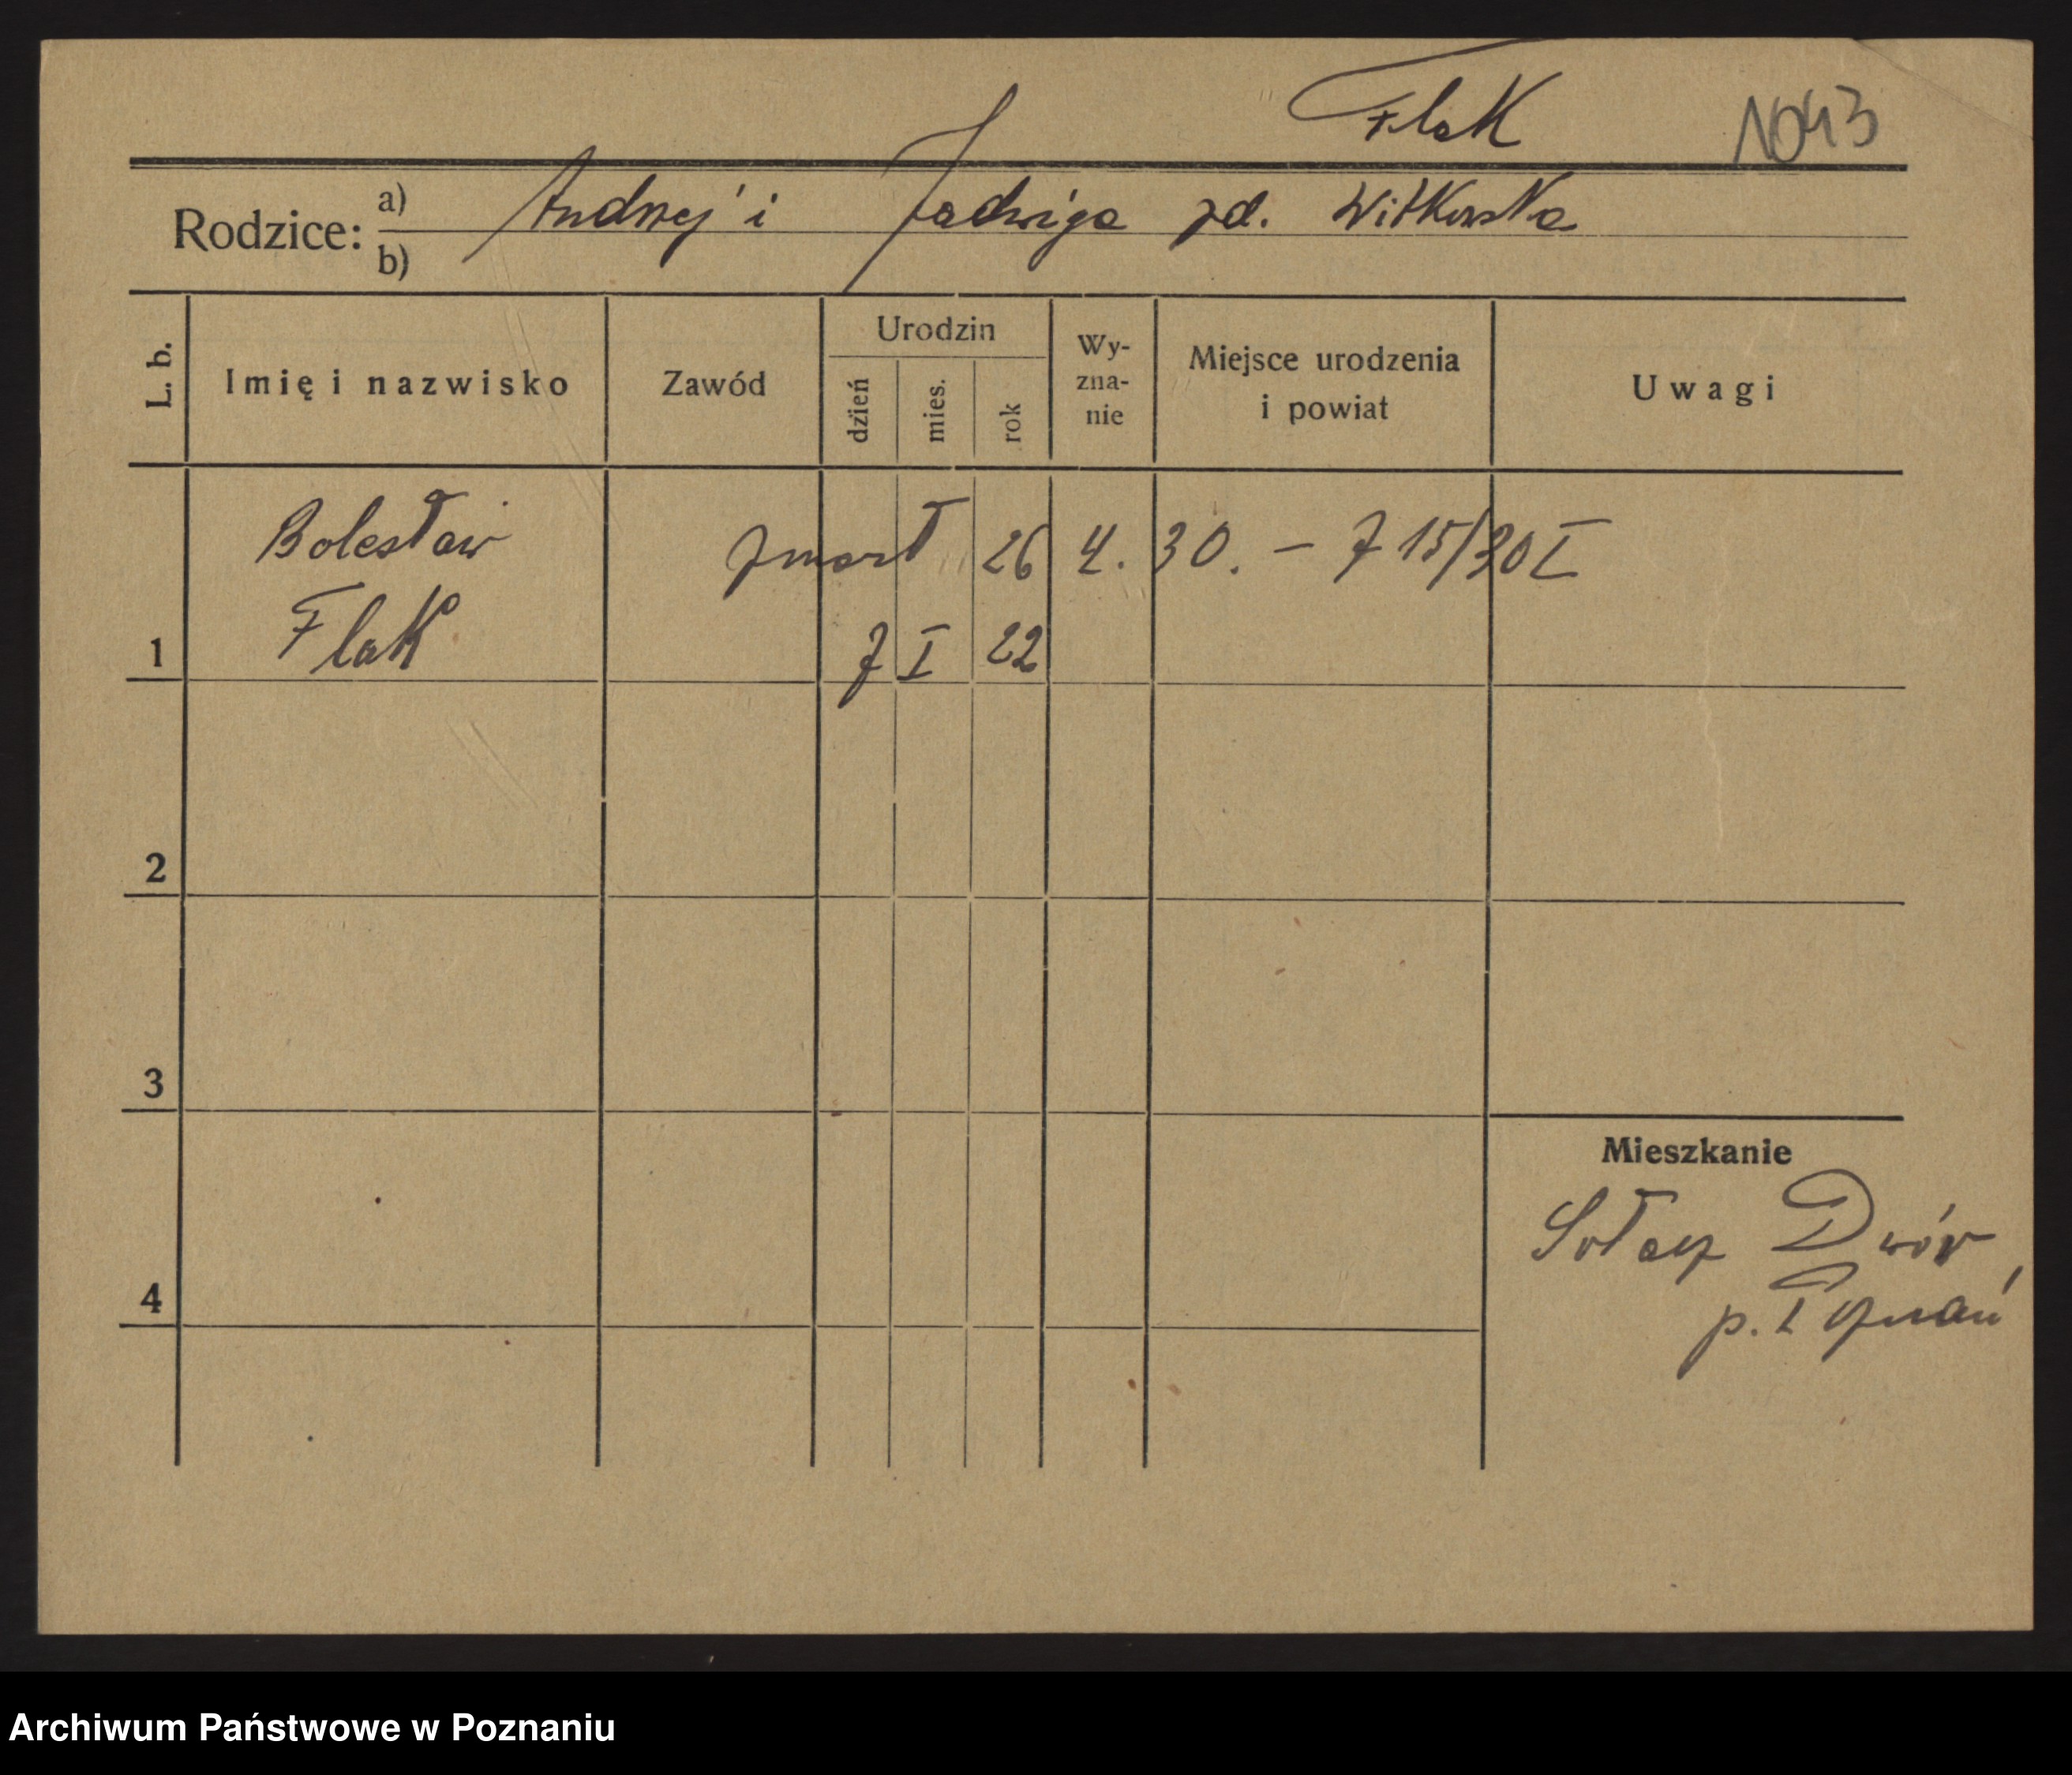 Flak 1043
Rodzice: a) Andrzej i Jadwiga zd. Witkowska
b)
L. b. Imię i nazwisko Zawód Urodzin dzień mies. rok Wy-zna-nie Miejsce urodzenia i powiat Uwagi
Bolesław zmarł 26 4. 30. – 7 15/30 I
1 Flak 7 I 22
2
3
Mieszkanie
Sołacz Dwór
4 p. Poznań
Archiwum Państwowe w Poznaniu